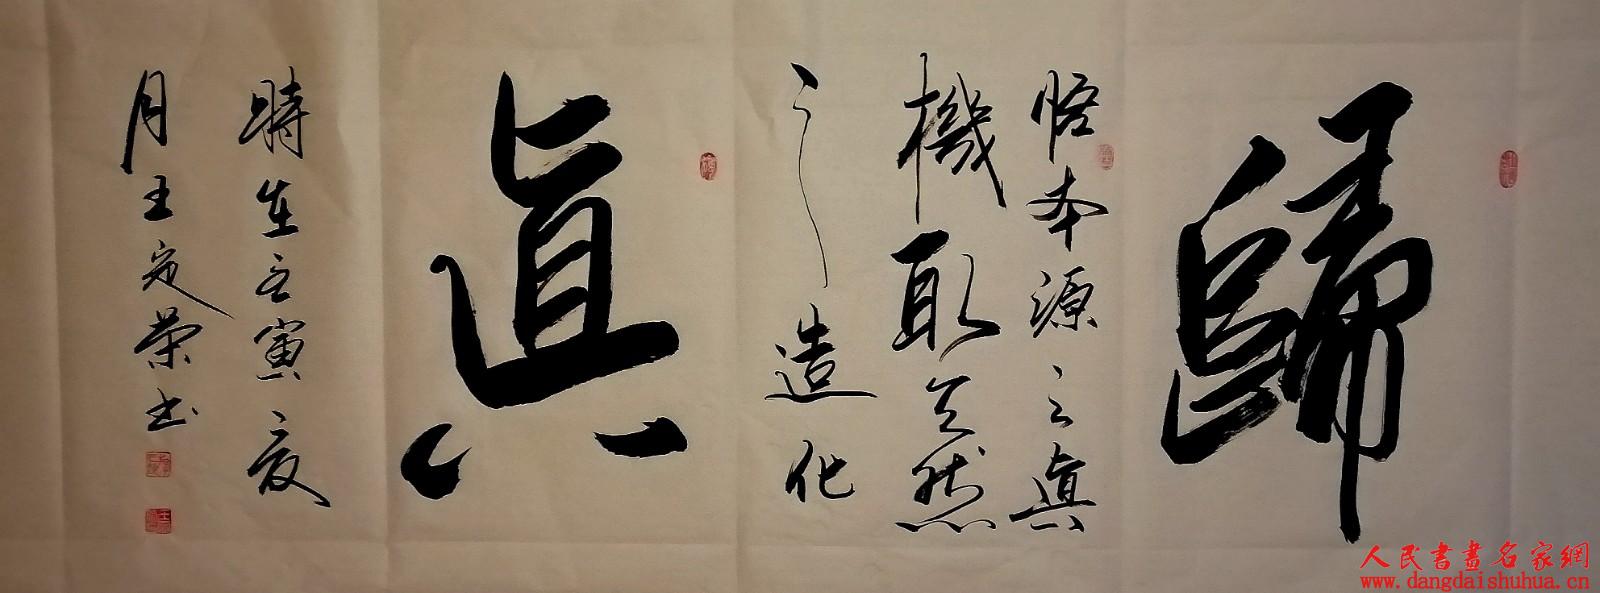 歸
悟本源之真
機取天然
之造化
真
時在壬寅夏
月王定榮书
人民書畫名家網
www.dangdaishuhua.cn